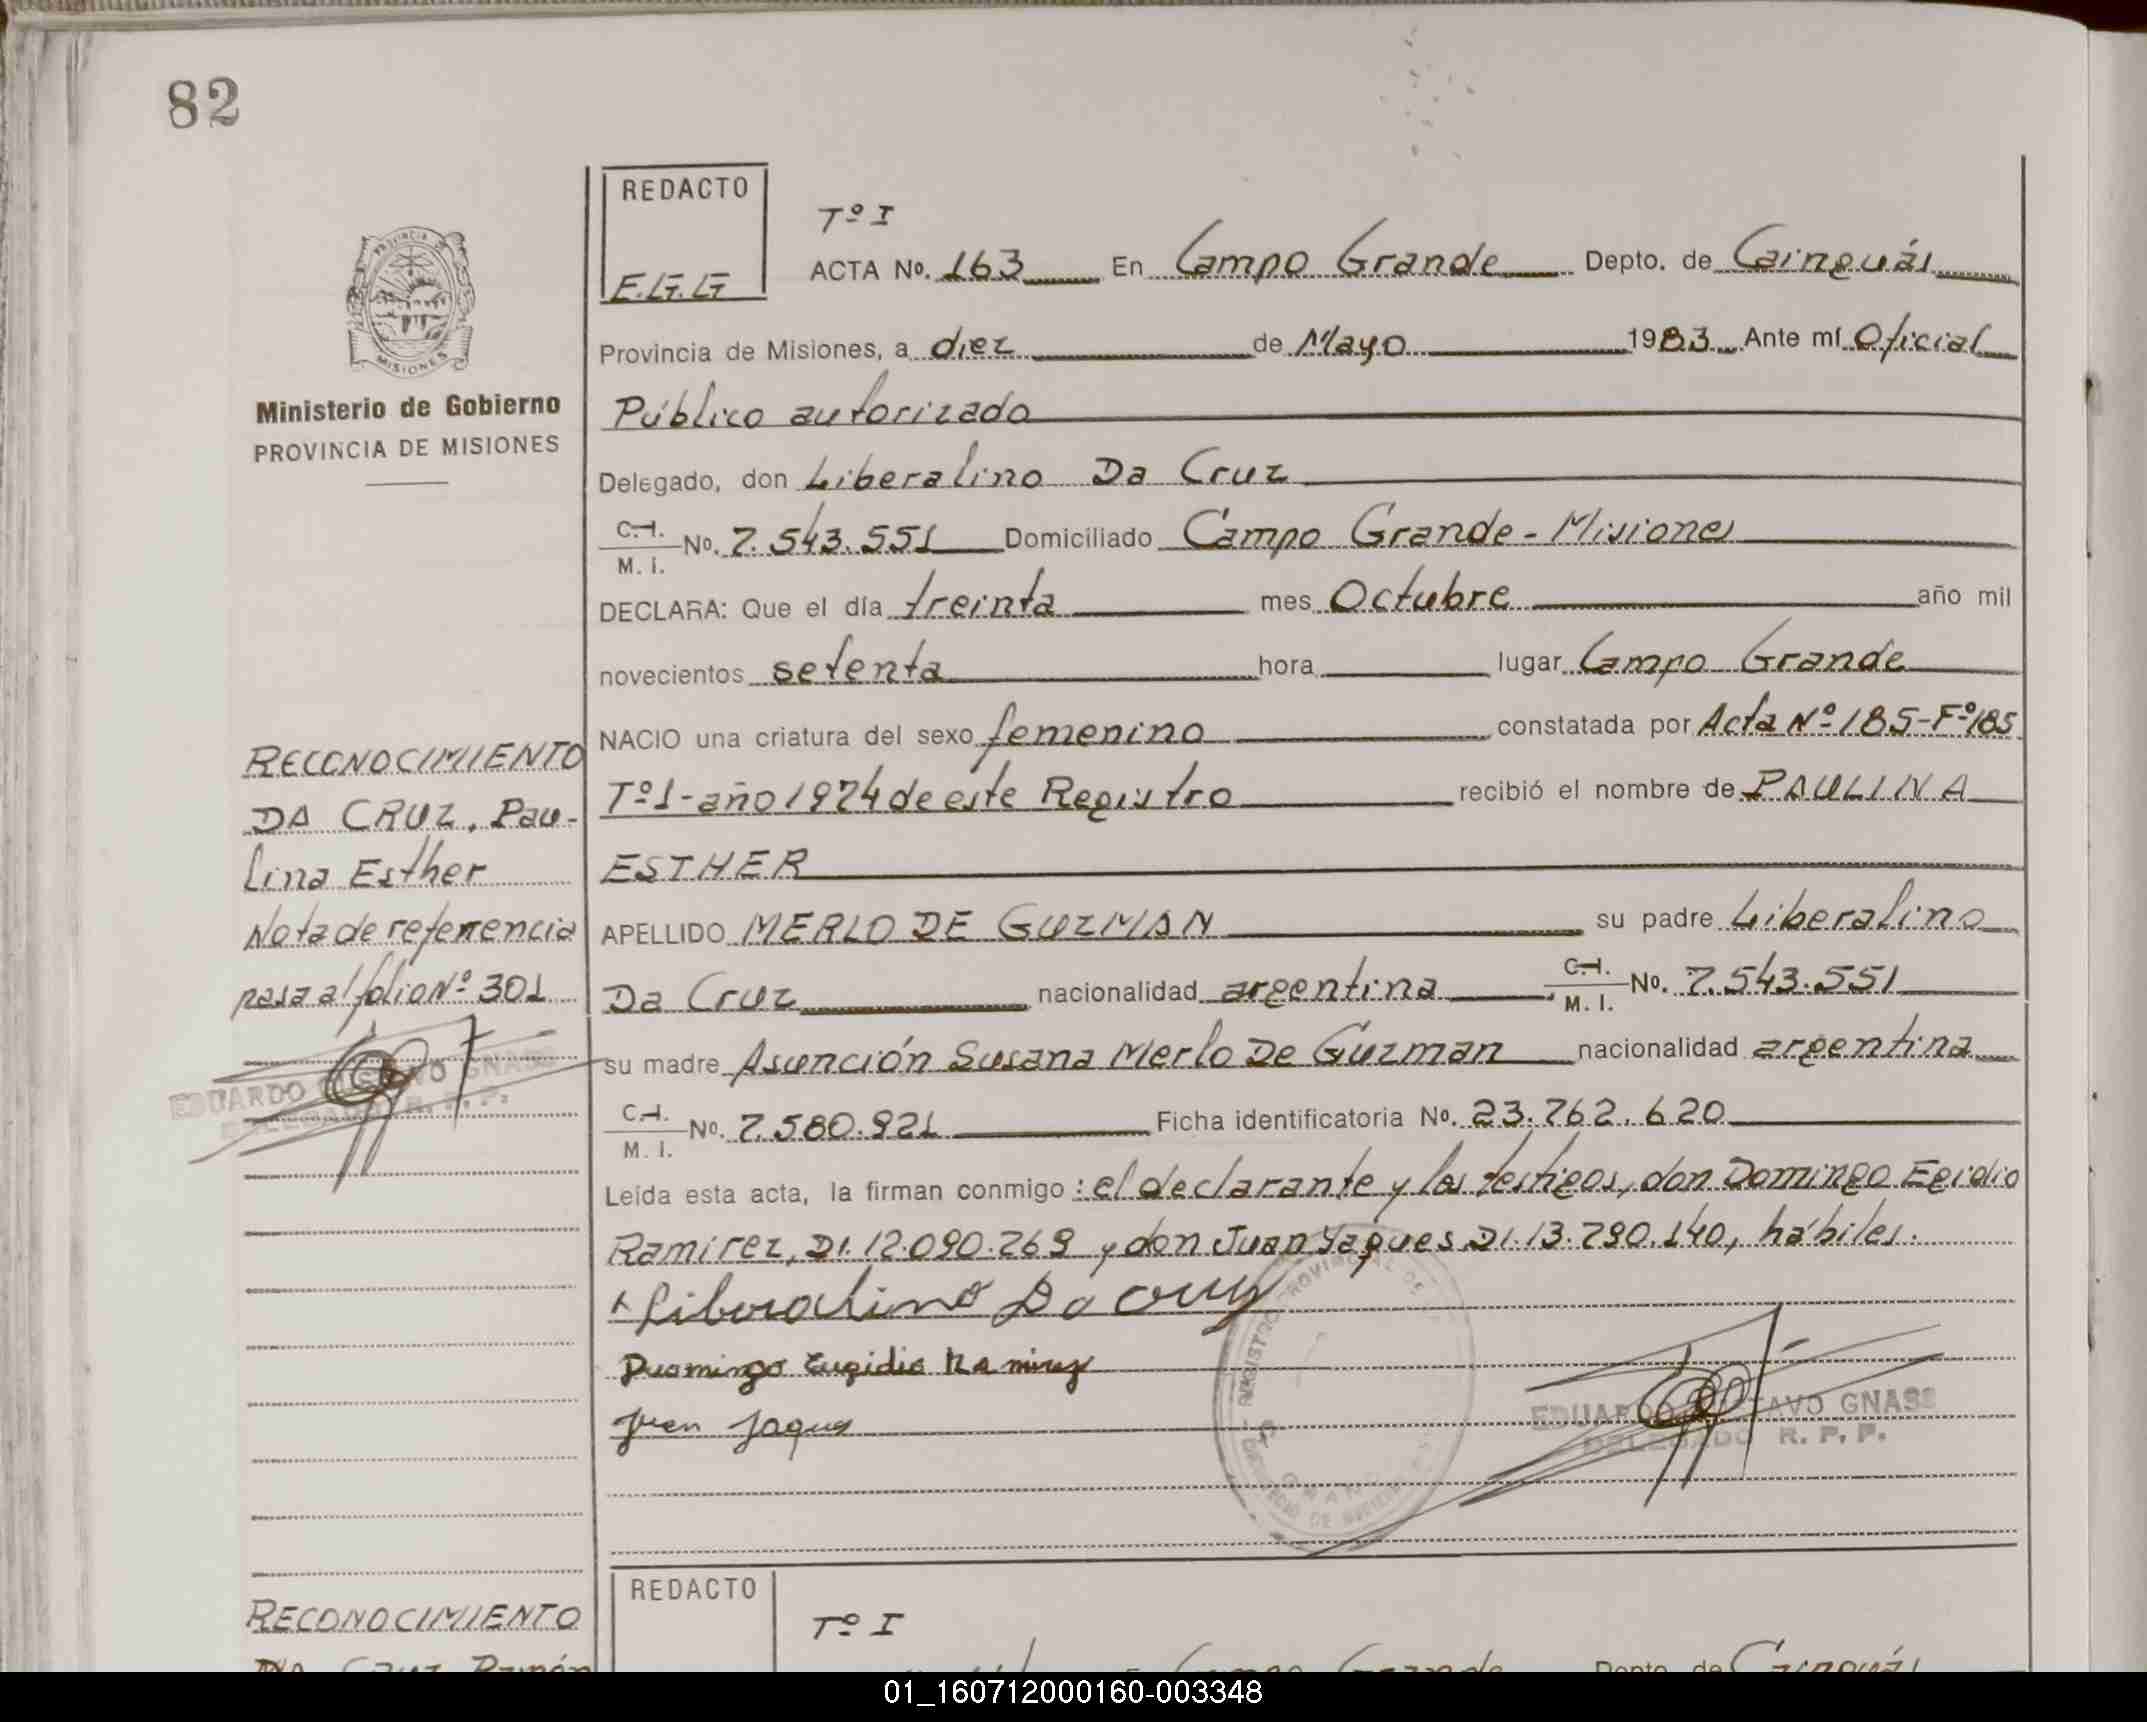 82
REDACTO
E.G.G
Tº I
ACTA Nº. 163 En Campo Grande Depto. de Cainguás
Provincia de Misiones, a diez de Mayo 1983 Ante mí Oficial
Público autorizado
Delegado, don Liberalino Da Cruz
C.I. M. I. Nº. 7.543.551 Domiciliado Campo Grande - Misiones
DECLARA: Que el día treinta mes Octubre año mil
novecientos setenta hora lugar Campo Grande
NACIO una criatura del sexo femenino constatada por Acta Nº 185-Fº185
Tº1-año 1974 de este Registro recibió el nombre de PAULINA
ESTHER
APELLIDO MERLO DE GUZMAN su padre Liberalino
Da Cruz nacionalidad argentina C.I. M. I. Nº. 7.543.551
su madre Asunción Susana Merlo De Guzman nacionalidad argentina
C.I. M. I. Nº. 7.580.921 Ficha identificatoria Nº. 23.762.620
Leída esta acta, la firman conmigo: el declarante y los testigos, don Domingo Egidio
Ramirez, DI. 12.090.269 y don Juan Yaques DI. 13.290.140, hábiles.
Liberalino Da Cruz
Duomingo Eugidio Ramirez
Juan Jaques
EDUARDO GUSTAVO GNASS
DELEGADO R. P. P.
PROVINCIA DE
MISIONES
Ministerio de Gobierno
PROVINCIA DE MISIONES
RECONOCIMIENTO
DA CRUZ, Pau-
lina Esther
Nota de referrencia
pasa al folio Nº 301
EDUARDO GUSTAVO GNASS
DELEGADO R. P. P.
REGISTRO PROVINCIAL DE
RECONOCIMIENTO
Da Cruz Ramón
REDACTO
Tº I
Campo Grande Depto. de Cainguás
01_160712000160-003348